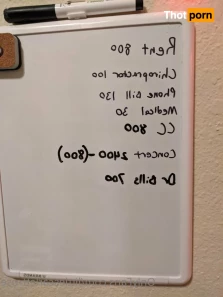 Thotporn
Rent 800
Chiropractor 100
Phone Bill 130
Medical 30
CC 800
Concert 2400 -(800)
Dr Bills 700